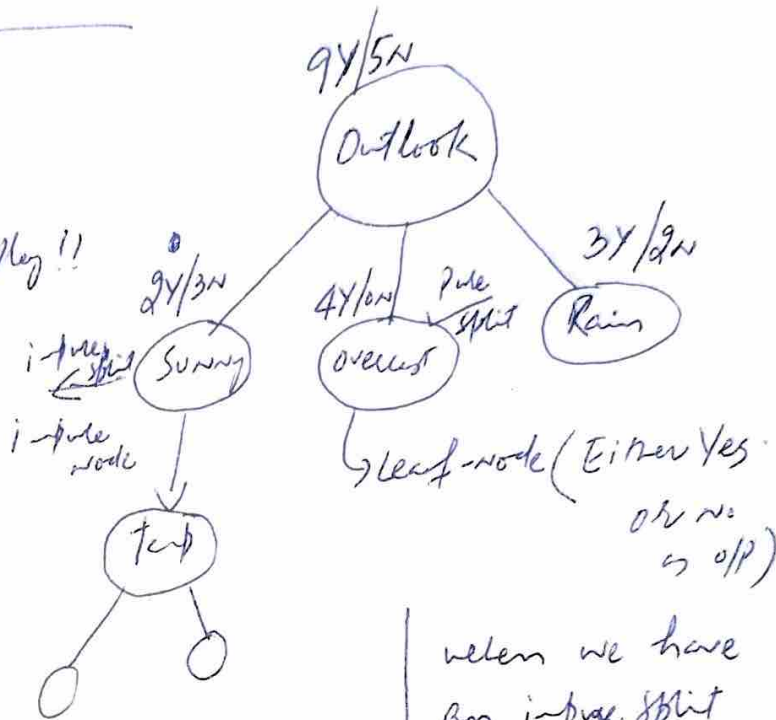 9Y/5N
Outlook
Play !!
2Y/3N
4Y/0N
Pure
split
3Y/2N
impure
split
Sunny
overcast
Rain
impure
node
Leaf-node (Either Yes
or No
as o/p)
Temp
when we have
an impure split